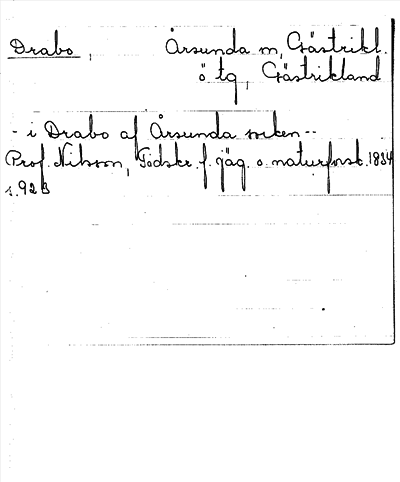 Drabo, Årsunda sn, Gästrikl.
ö. tg, Gästrikland
- i Drabo af Årsunda socken --
Prof. Nilsson, Tidskr. f. jäg. o. naturforsk. 1834
s. 923